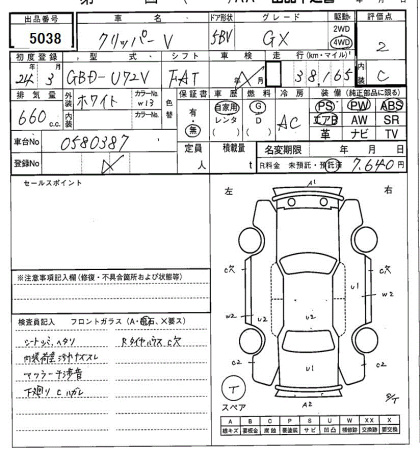 出品番号 車名 ドア形状 グレード 駆動 評価点
5038 クリッパーV 5BV GX 2WD 4WD 2
初度登録 型式 シフト 車検 走行(km・マイル) 内装
24年 3月 GBD-U72V FAT 38,165 C
排気量 外装 ホワイト カラーNo. W13 色替 保証書 車歴 燃料 冷房 装備(純正部品に限る)
660 c.c. 内装 カラーNo. 有・無 自家用 レンタ G D AC PS PW ABS
エアB AW SR
革 ナビ TV
車台No 0580387 定員 人 積載量 t 名変期限 年 月 日
登録No R料金 未預託・預託済 7,640円
セールスポイント
左 右
A1
C穴 C穴
U1 W2
W2 U2 U2
C2 U1 C2
A2
スペア
※注意事項記入欄(修復・不具合箇所および状態等)
検査員記入 フロントガラス(A・飛石、X要ス)
シートシミ、ヘタリ RタイヤハウスC穴
マフラー 音
下廻り
A B C P S U W X XX X
線キズ 要板金 腐蝕 要塗装 サビ 凹凸 補修跡 交換跡 要交換